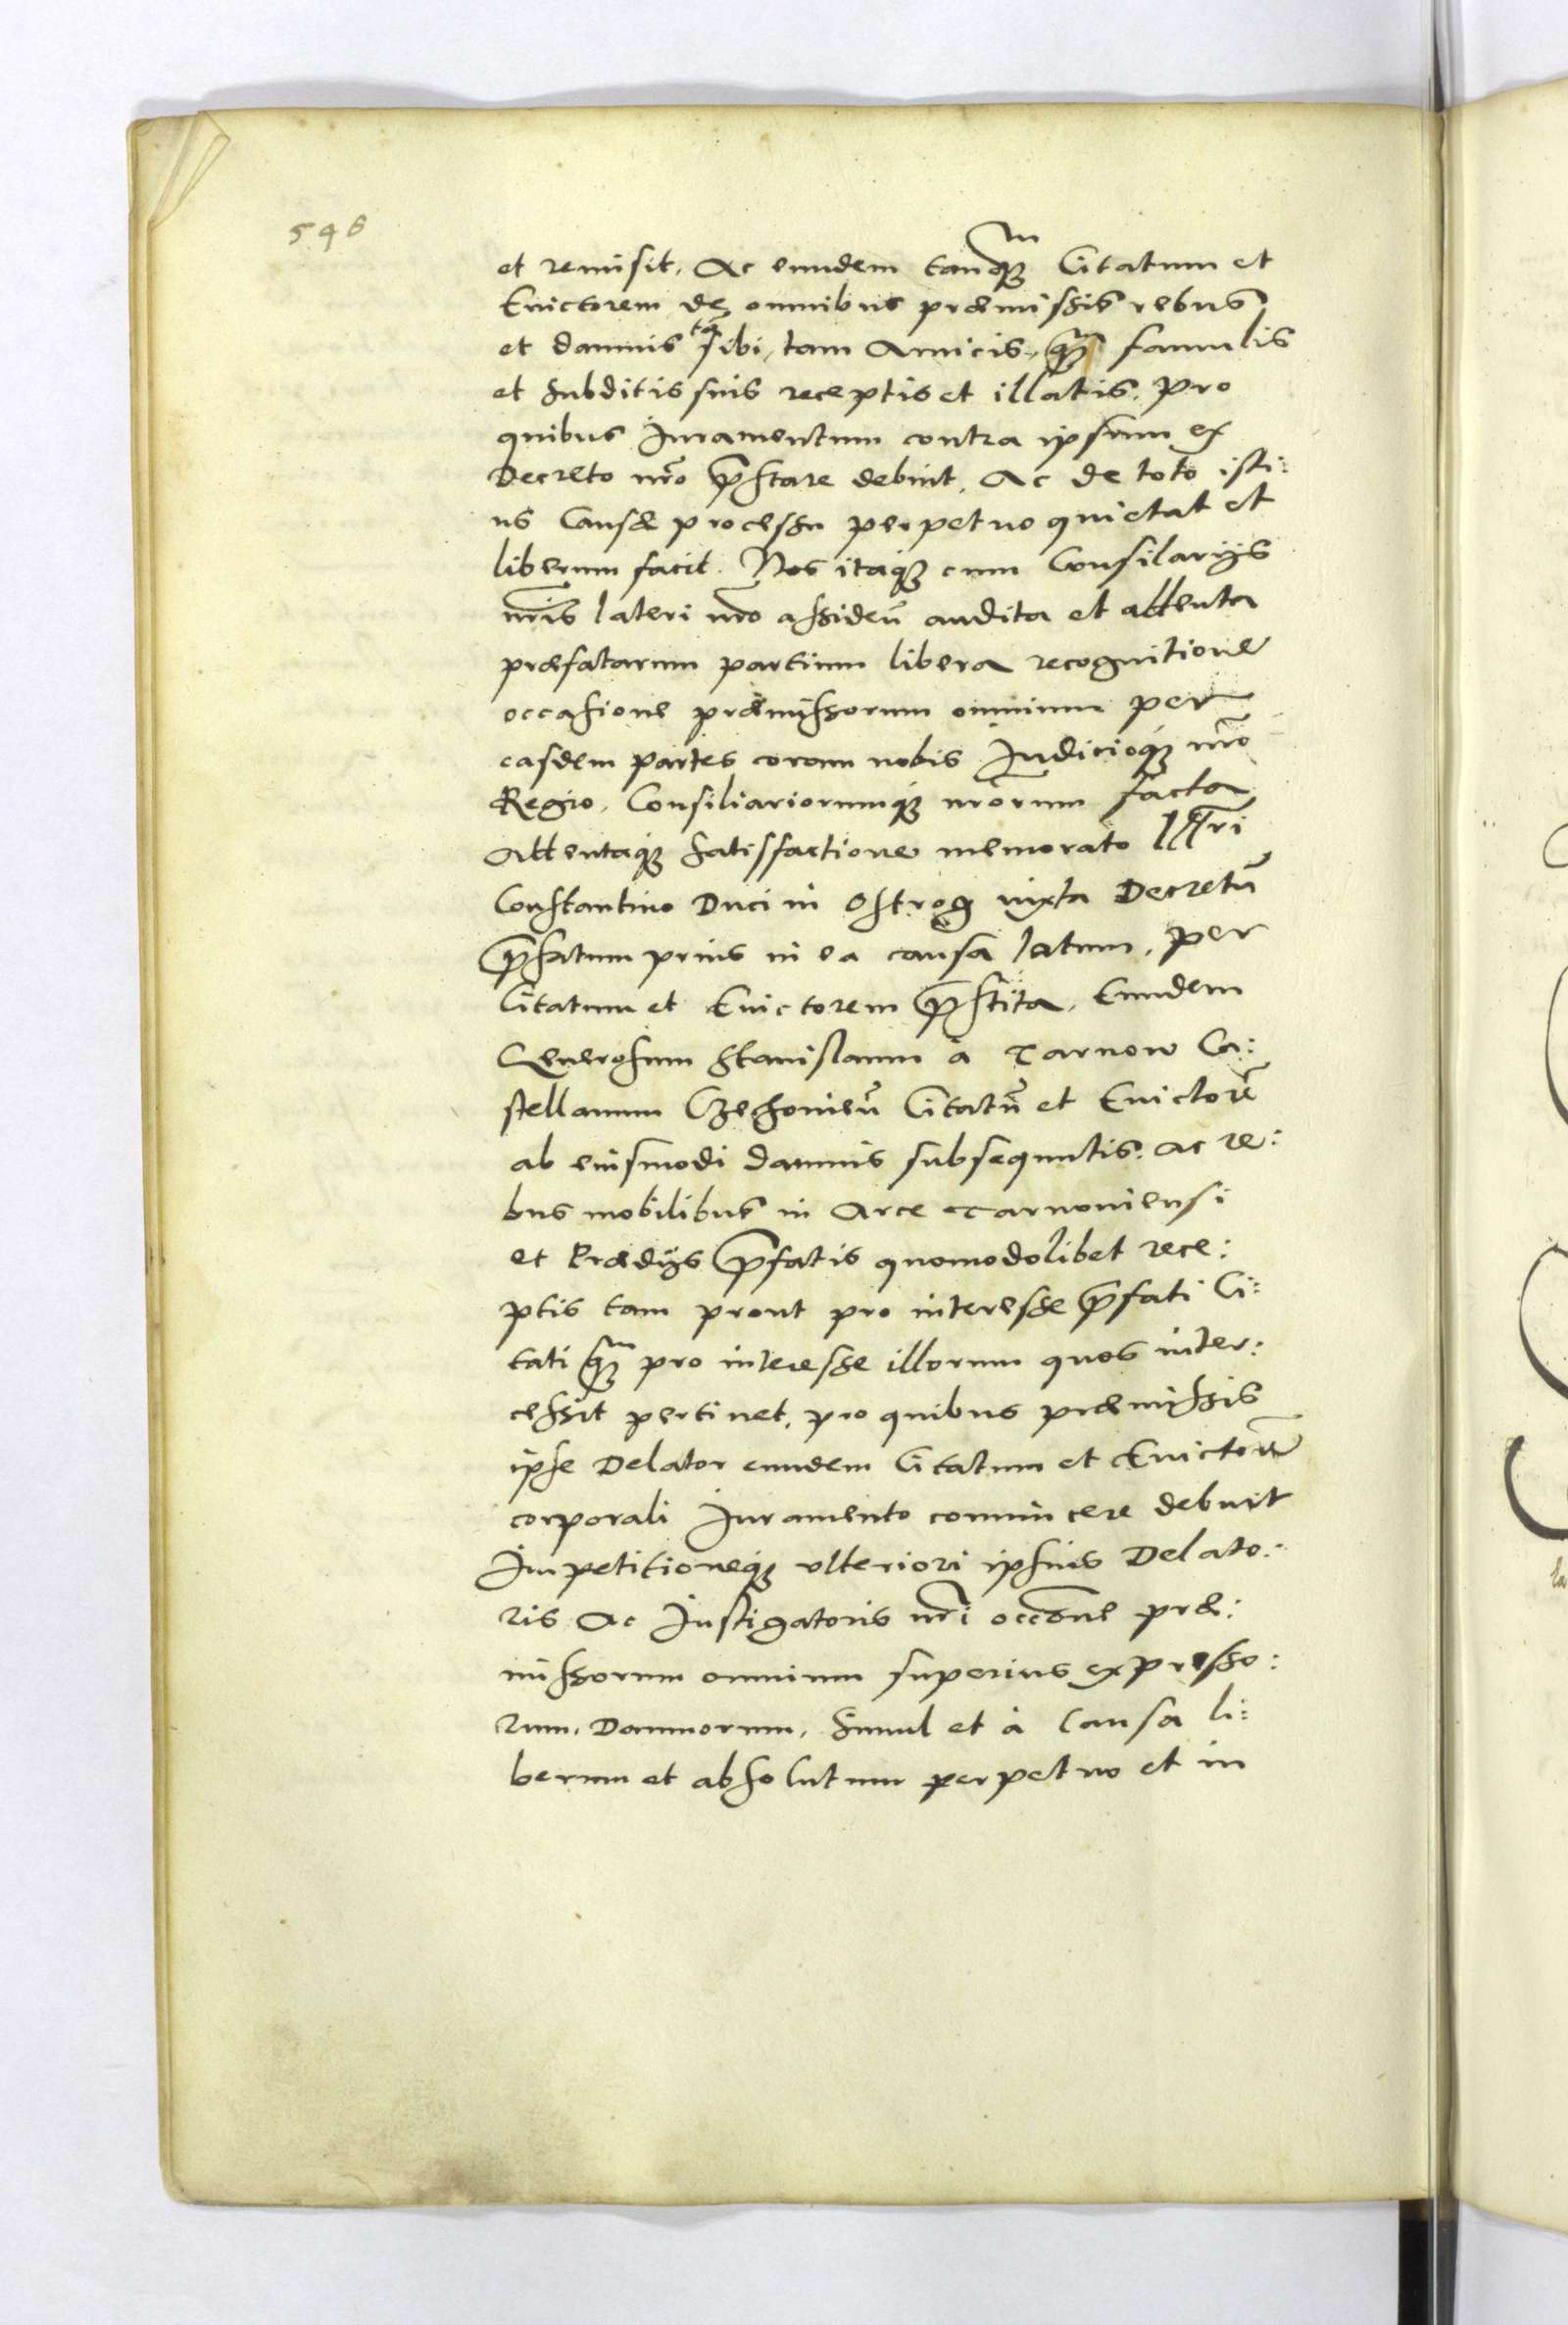 546
et remisit, Ac eundem tanq̃ Citatum et
Euictorem de omnibus præmissis rebus
et damnis tã sibi, tam Amicis, q̃ famulis
et subditis suis receptis et illatis, pro
quibus Iuramentum contra ipsum ex
Decreto nr̃o p̃stare debuit, Ac de toto isti:
us Causæ processu perpetuo quietat et
liberum facit. Nos itaq; cum Consilarijs
nr̃is lateri nr̃o assideñ audita et attenta
præfatarum partium libera recognitione
occasione præmissorum omnium per
easdem partes coram nobis Iudicioq; nr̃o
Regio, Consiliariorumq; nr̃orum facta
Attentaq; satisfactione memorato Illr̃i
Constantino Duci in Ostrog iuxta Decretũ
p̃fatum prius in ea causa latum, per
Citatum et Euictorem p̃stita, Eundem
Generosum Stanislaum à Tarnow Ca:
stellanum Czechouieñ Citatũ et Euictorẽ
ab eiusmodi damnis subsequutis, ac re:
bus mobilibus in Arce Tarnouiensi
et Prædijs p̃fatis quomodolibet rece:
ptis tam prout pro interesse p̃fati Ci:
tati q̃ pro interesse illorum quos inter:
cessit pertinet, pro quibus præmissis
ipse Delator eundem Citatum et Euictorẽ
corporali Iuramento conuincere debuit
Impetitioneq; vlteriori ipsius Delato:
ris Ac Instigatoris nr̃i occõne præ:
missorum omnium superius expresso:
rum, Damnorum, simul et à Causa li:
berum et absolutum perpetuo et in